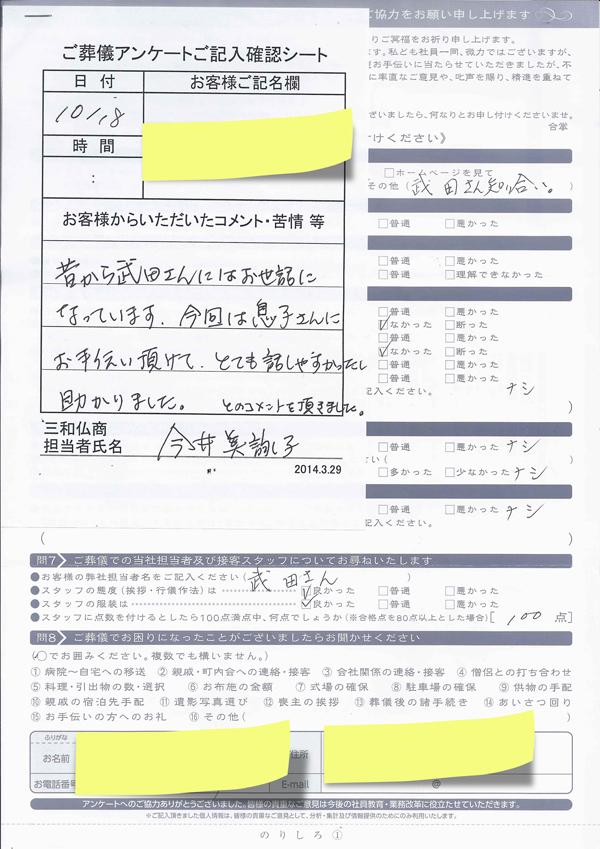 ご協力をお願い申し上げます
りご冥福をお祈り申し上げます。
ます。私ども社員一同、微力ではございますが、
お手伝いに当たらせていただきましたが、不
に率直なご意見や、叱声を賜り、精進を重ねて
ございましたら、何なりとお申し付けくださいませ。
合掌
けください》
□ホームページを見て
その他（武田さん知り合い。）
□普通 □悪かった
□普通 □悪かった
□普通 □理解できなかった
□普通 □悪かった
☑なかった □断った
□普通 □悪かった
☑なかった □断った
□普通 □悪かった
□普通 □悪かった
記入ください。 ナシ
）
□普通 □悪かった ナシ
さい（ ）
□多かった □少なかった ナシ
□普通 □悪かった ナシ
記入ください。
（ ）
ご葬儀アンケートご記入確認シート
日付 お客様ご記名欄
10/18
時間
：
お客様からいただいたコメント・苦情 等
昔から武田さんにはお世話に
なっています。今回は息子さんに
お手伝い頂けて、とても話しやすかったし
助かりました。 とのコメントを頂きました。
三和仏商
担当者氏名 今井美諭子
2014.3.29
問7 ご葬儀での当社担当者及び接客スタッフについてお尋ねいたします
●お客様の弊社担当者名をご記入ください（武田さん）
●スタッフの態度（挨拶・行儀作法）は ☑良かった □普通 □悪かった
●スタッフの服装は ☑良かった □普通 □悪かった
●スタッフに点数を付けるとしたら100点満点中、何点でしょうか（※合格点を80点以上とした場合）[ 100 点]
問8 ご葬儀でお困りになったことがございましたらお聞かせください
（○でお囲みください。複数でも構いません。）
① 病院～自宅への移送 ② 親戚・町内会への連絡・接客 ③ 会社関係の連絡・接客 ④ 僧侶との打ち合わせ
⑤ 料理・引出物の数・選択 ⑥ お布施の金額 ⑦ 式場の確保 ⑧ 駐車場の確保 ⑨ 供物の手配
⑩ 親戚の宿泊先手配 ⑪ 遺影写真選び ⑫ 喪主の挨拶 ⑬ 葬儀後の諸手続き ⑭ あいさつ回り
⑮ お手伝いの方へのお礼 ⑯ その他（ ）
ふりがな
お名前 住所
お電話番号 E-mail @
アンケートへのご協力ありがとうございました。皆様の貴重なご意見は今後の社員教育・業務改革に役立たせていただきます。
※ご記入頂きました個人情報は、皆様の貴重なご意見として、分析・集計及び情報提供のためにのみ利用いたします。
のりしろ①